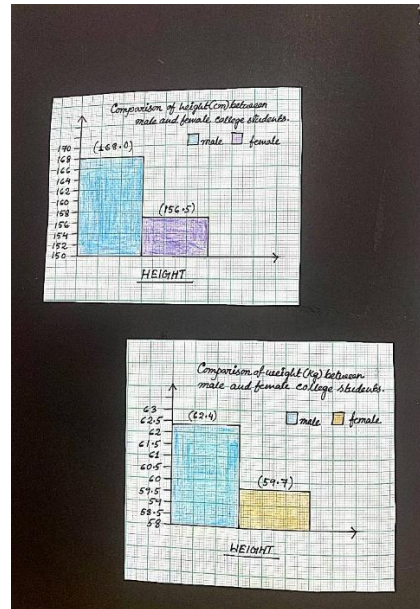 Comparison of height(cm) between
male and female college students.
male female
170
168
166
164
162
160
158
156
154
152
150
(168.0)
(156.5)
HEIGHT
Comparison of weight (Kg) between
male and female college students.
male female
63
62.5
62
61.5
61
60.5
60
59.5
59
58.5
58
(62.4)
(59.7)
WEIGHT